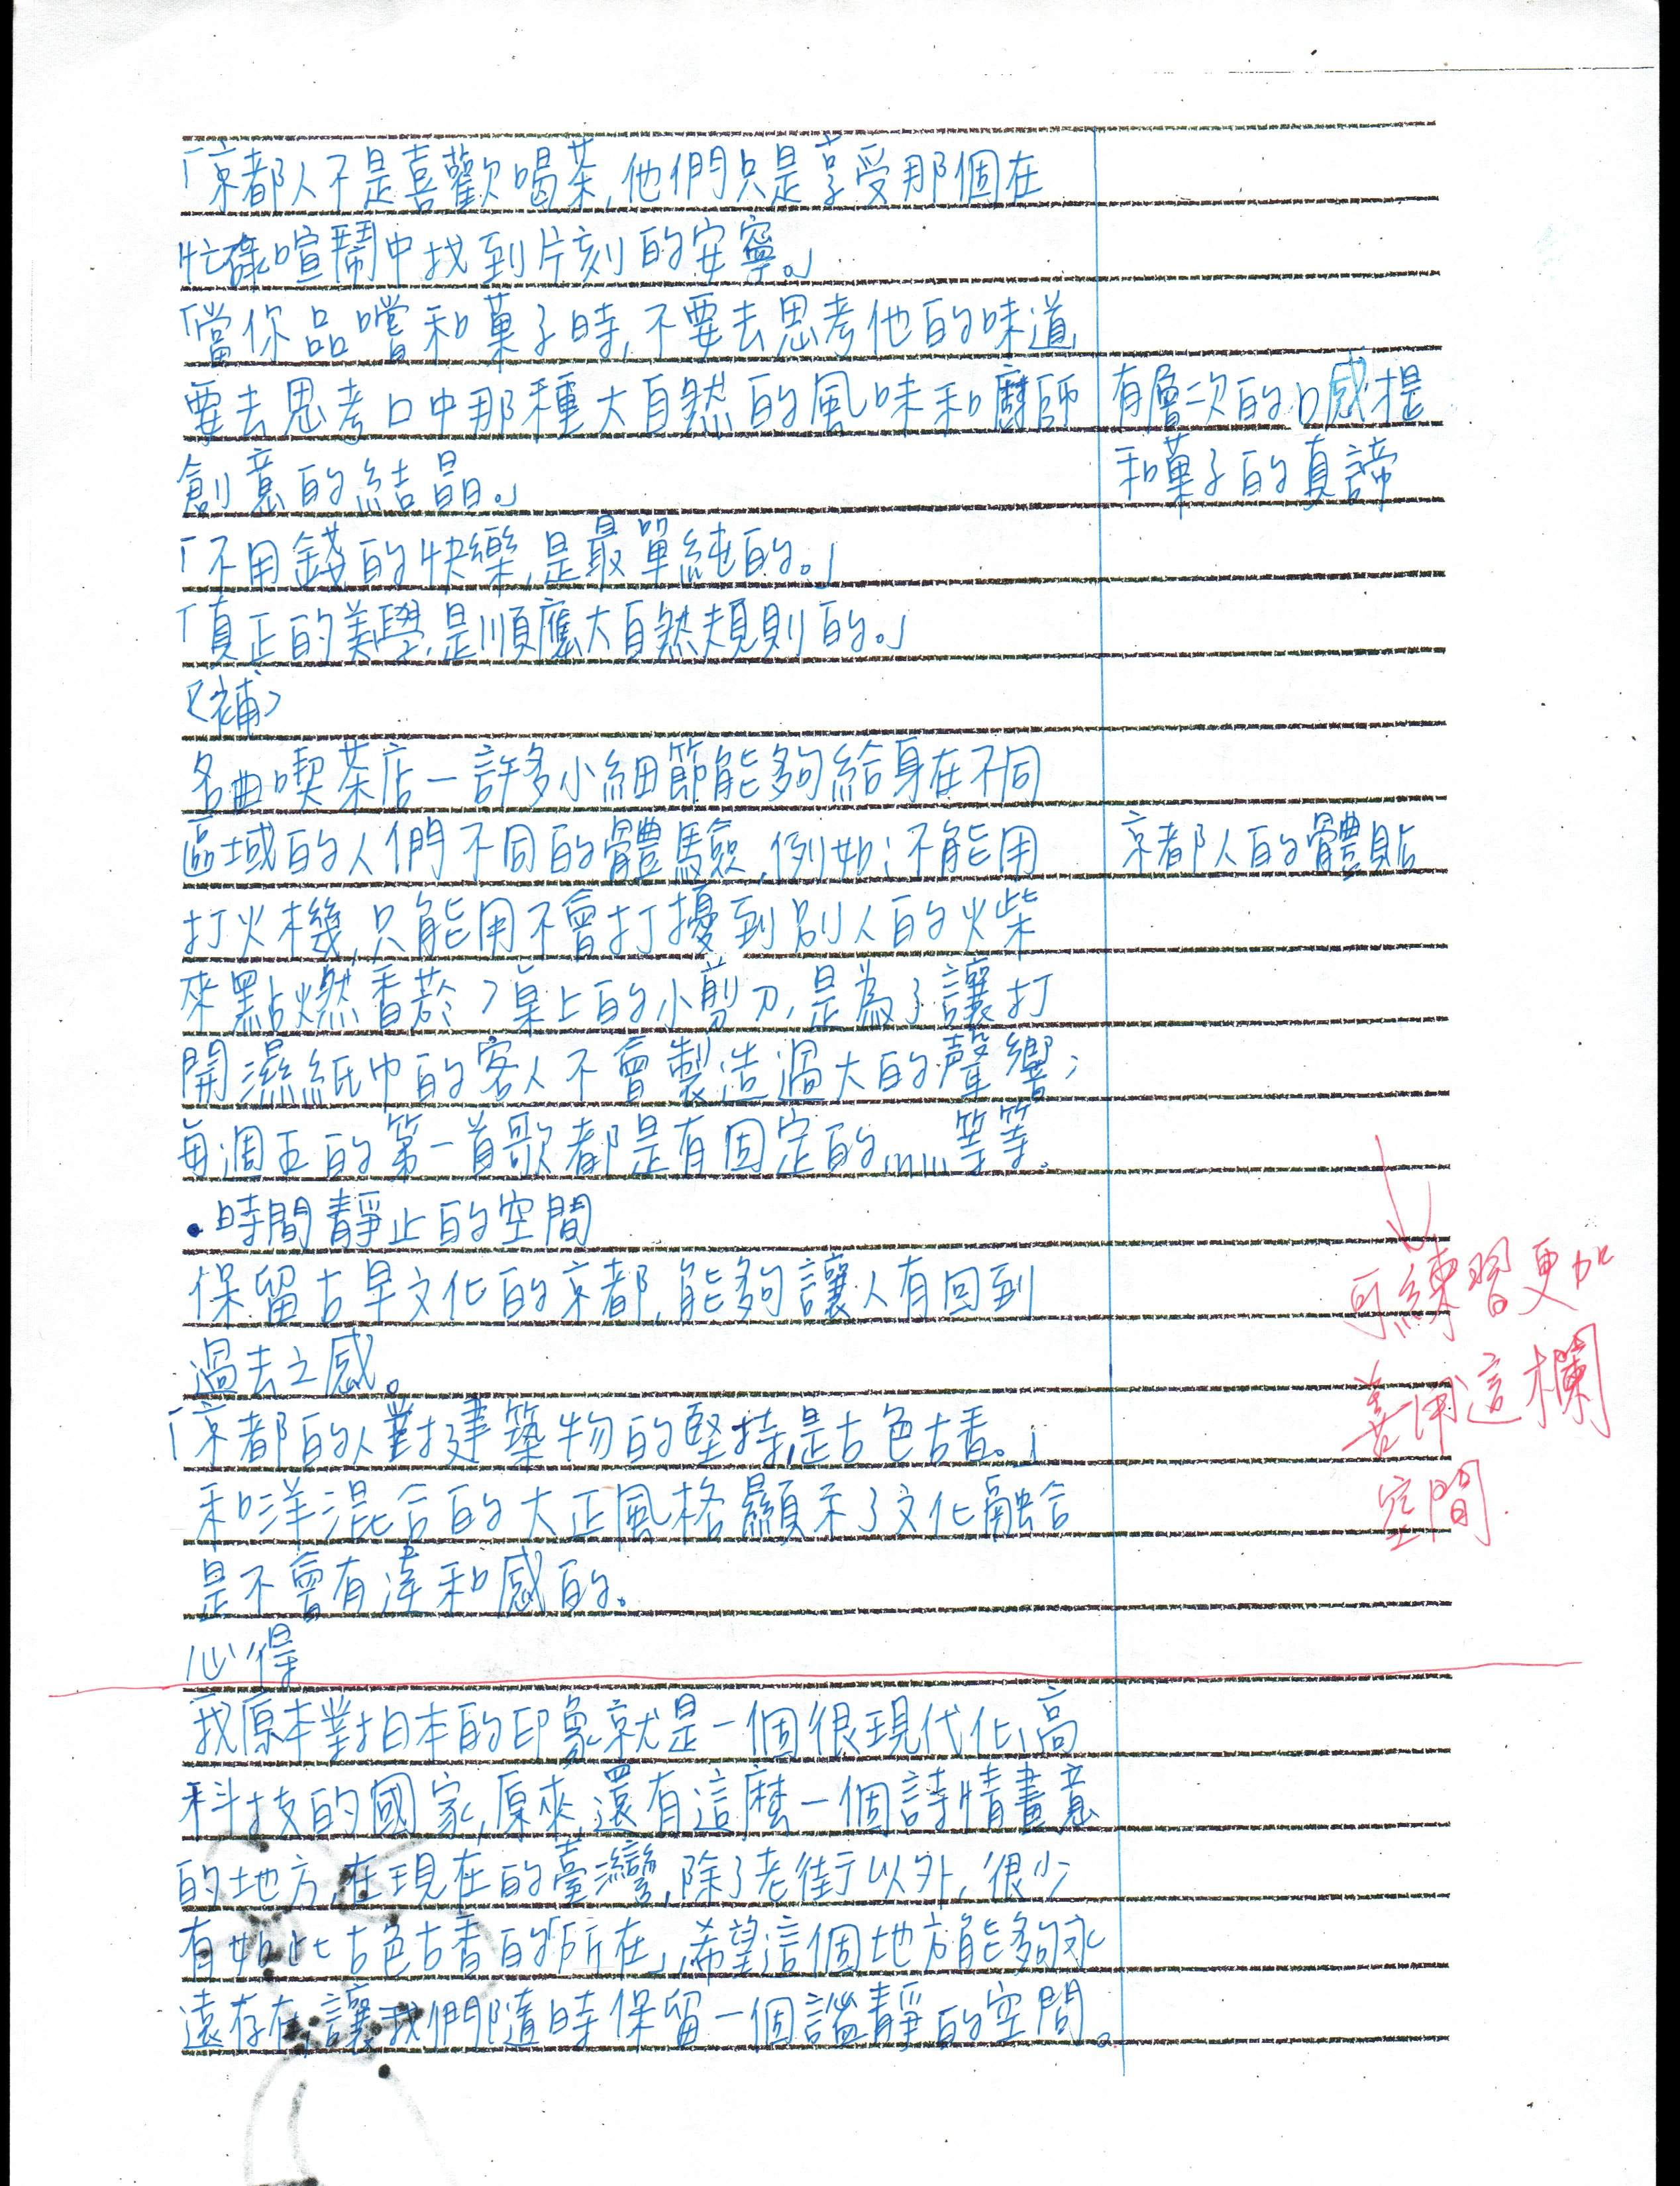 「京都人不是喜歡喝茶,他們只是享受那個在
忙碌喧鬧中找到片刻的安寧。」
「當你品嚐和菓子時,不要去思考他的味道
要去思考口中那種大自然的風味和廚師
有層次的口感才是
創意的結晶。」
和菓子的真諦
「不用錢的快樂,是最單純的。」
「真正的美學,是順應大自然規則的。」
<補>
名曲喫茶店—許多小細節能夠給身在不同
區域的人們不同的體驗,例如:不能用
京都人的體貼
打火機,只能用不會打擾到別人的火柴
來點燃香菸;桌上的小剪刀,是為了讓打
開濕紙巾的客人不會製造過大的聲響;
每週五的第一首歌都是有固定的……等等。
•時間靜止的空間
保留古早文化的京都,能夠讓人有回到
過去之感。
「京都的人對建築物的堅持,是古色古香。」
和洋混合的大正風格顯示了文化融合
是不會有違和感的。
可練習更加
善用這欄
空間.
心得
我原本對日本的印象就是一個很現代化、高
科技的國家,原來,還有這麼一個詩情畫意
的地方,在現在的臺灣,除了老街以外,很少
有如此古色古香的「所在」,希望這個地方能夠永
遠存在,讓我們隨時保留一個謐靜的空間。